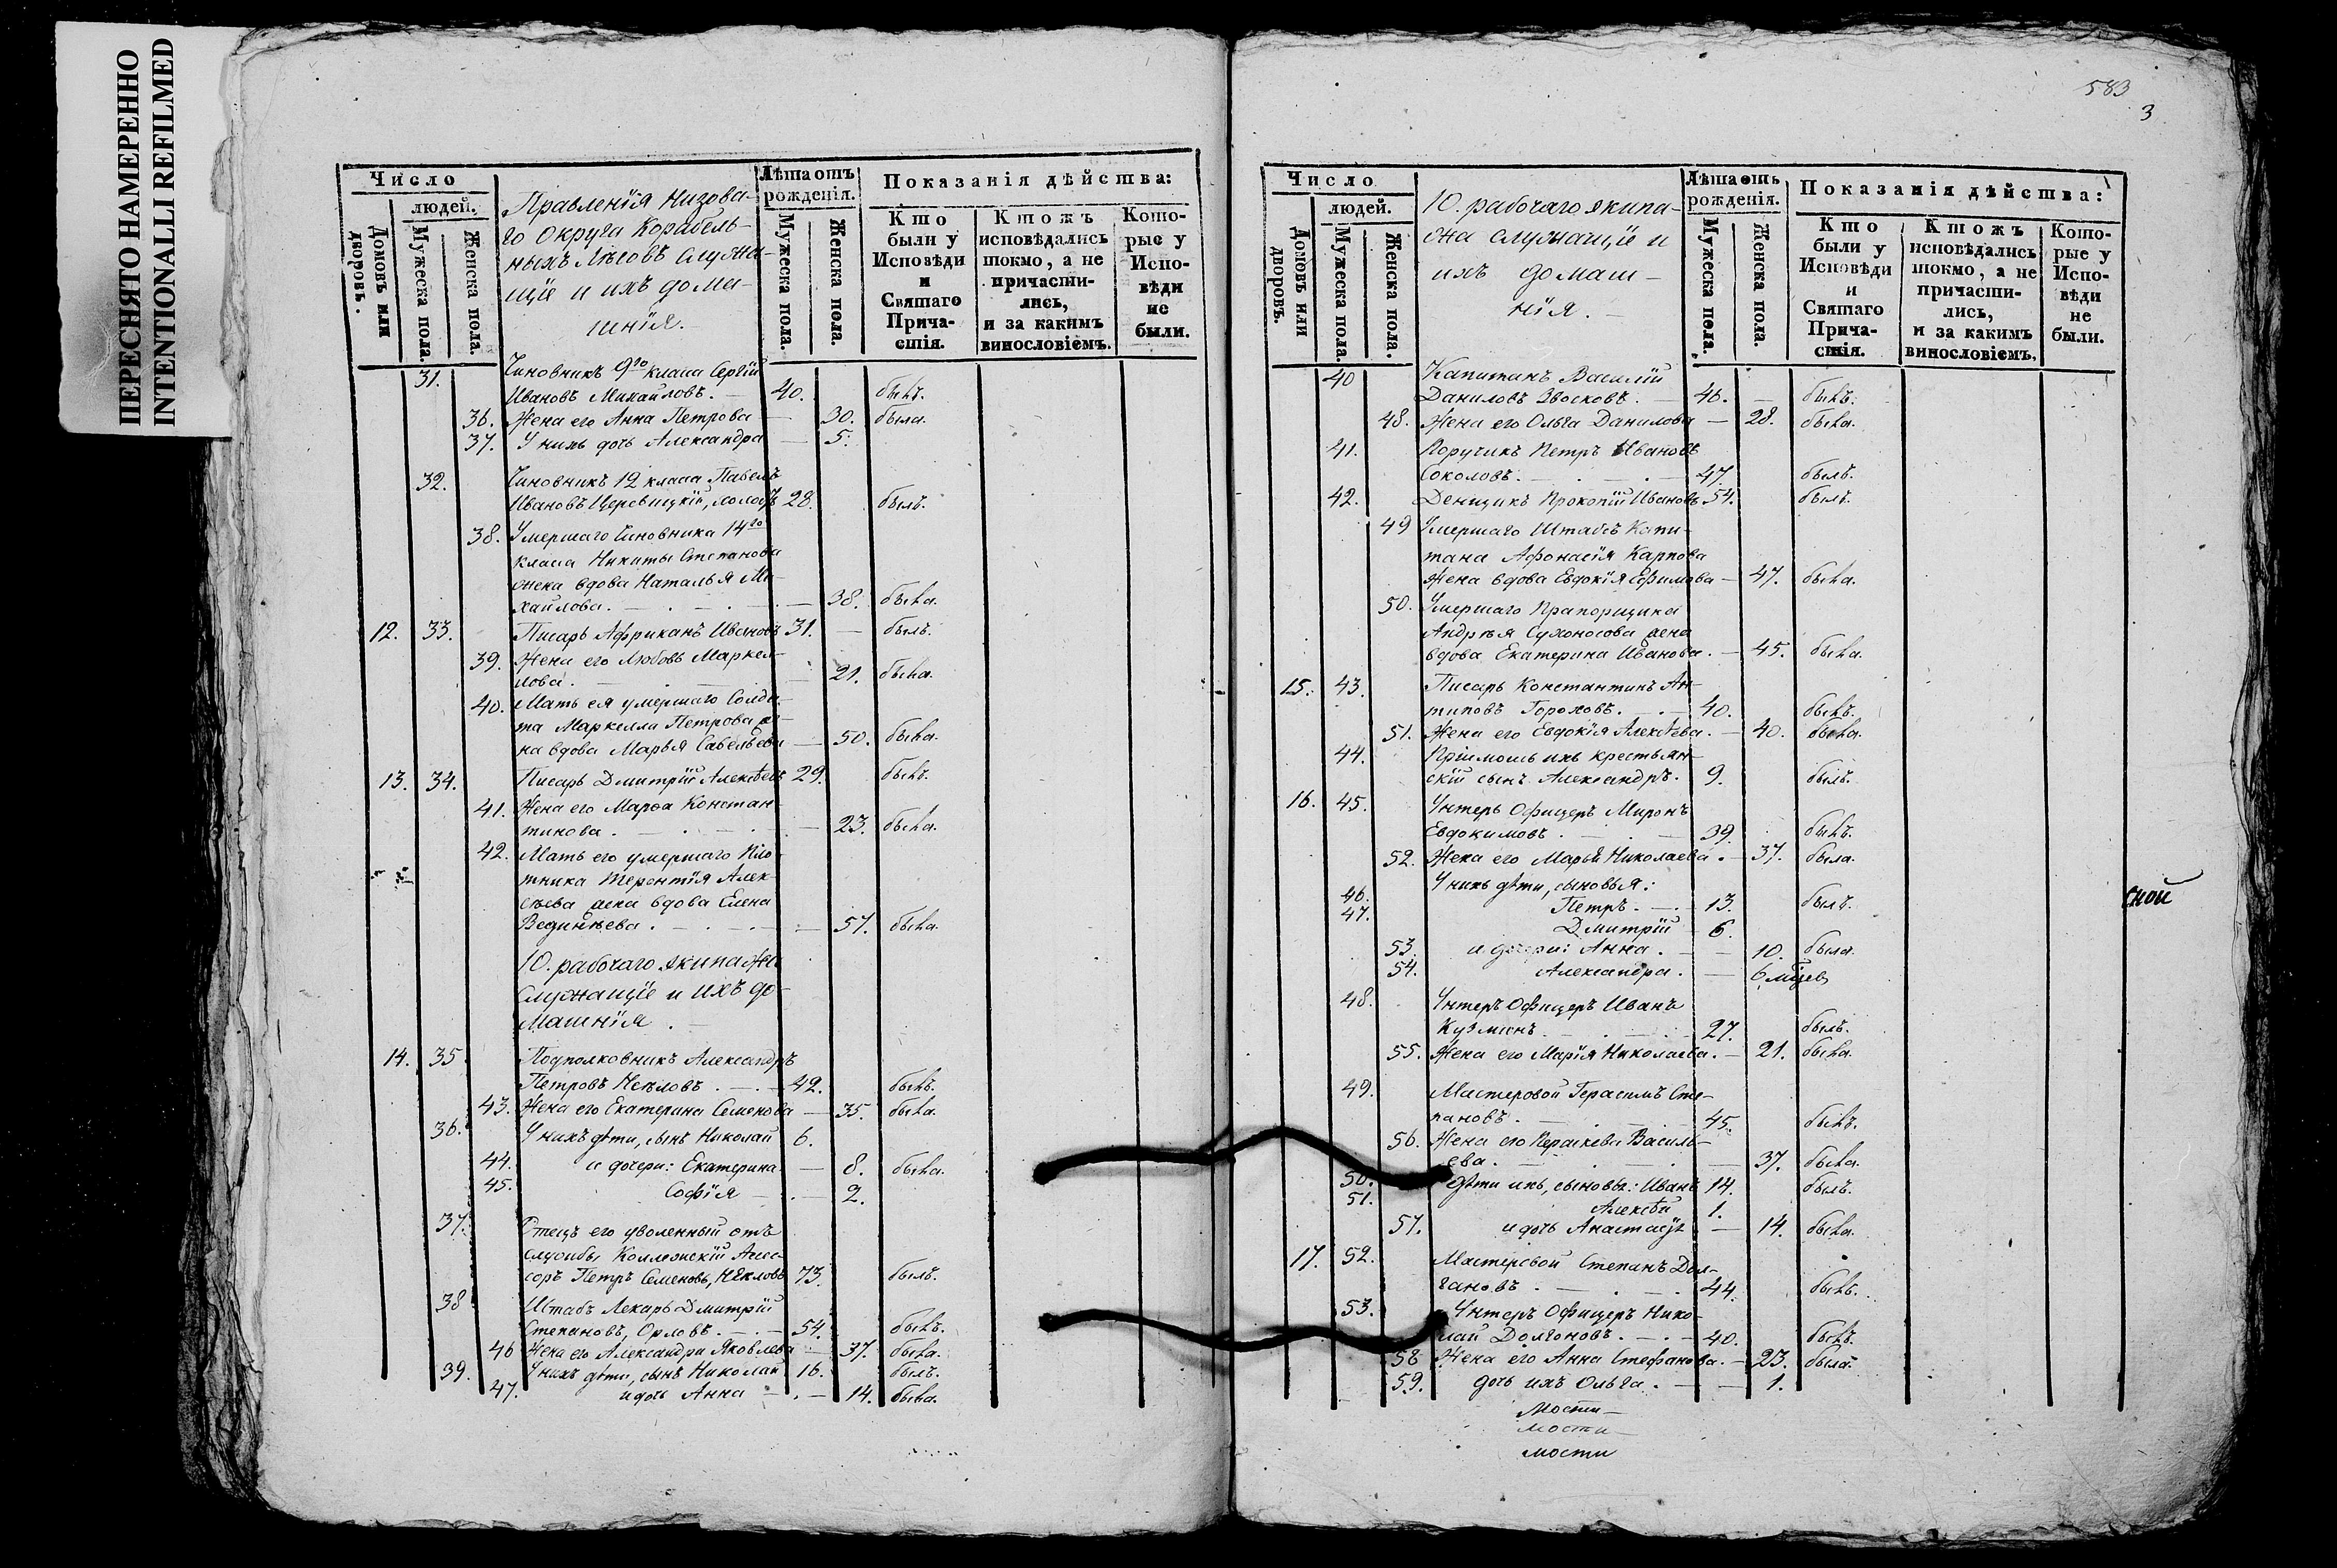 ПЕРЕСНЯТО НАМЕРЕННО
INTENTIONALLI REFILMED
Число
людей.
Домовъ или дворовъ.
Мужеска пола.
Женска пола.
Правленія Низова-
го Округа Корабель-
ныхъ Лѣсовъ Служа-
щіе и ихъ дома-
шнія.
Лѣта отъ рожденія.
Мужеска пола.
Женска пола.
Показанія дѣйства:
Кто были у Исповѣди и Святаго Причастія.
Кто жъ исповѣдались токмо, а не причастились, и за какимъ винословіемъ.
Которые у Исповѣди не были.
31. Чиновникъ 9го класа Сергій
Ивановъ Михайловъ. 40. былъ.
36. Жена его Анна Петрова — 30. была.
37. У нихъ дочь Александра — 5.
32. Чиновникъ 12 класа Павелъ
Ивановъ Церевицкій, холостъ 28. былъ.
38. Умершаго Чиновника 14го
класа Никиты Степанова
жена вдова Наталья Ми-
хайлова. — 38. была.
12. 33. Писарь Африканъ Ивановъ 31. — былъ.
39. Жена его Любовь Маркел-
лова. — 21. была.
40. Мать ея умершаго Солда-
та Маркелла Петрова же-
на вдова Марья Савельева — 50. была.
13. 34. Писарь Дмитрій Алексѣевъ 29. былъ.
41. Жена его Марѳа Констан-
тинова. — 23. была.
42. Мать его умершаго Пло-
тника Терентія Алек-
сѣева жена вдова Елена
— 57. была.
10. рабочаго экипажа
Служащіе и ихъ до-
машнія.
14. 35. Подполковникъ Александръ
Петровъ Нѣловъ. — 42. былъ.
43. Жена его Екатерина Семенова — 35. была.
36. У нихъ дѣти, сынъ Николай 6.
44. и дочери: Екатерина — 8. была.
45. Софія — 2.
37. Отецъ его уволенный отъ
службы Коллежскій Ассе-
соръ Петръ Семеновъ, Нѣловъ 73. былъ.
38 Штабъ Лекарь Дмитрій
Степановъ, Орловъ. — 54. былъ.
46 Жена его Александра Яковлева — 37. была.
39. У нихъ дѣти, сынъ Николай 16. былъ.
47. и дочь Анна — 14. была.
583
3
Число
людей.
Домовъ или дворовъ.
Мужеска пола.
Женска пола.
10. рабочаго экипа-
жа служащіе и
ихъ домаш-
нія.
Лѣта отъ рожденія.
Мужеска пола.
Женска пола.
Показанія дѣйства:
Кто были у Исповѣди и Святаго Причастія.
Кто жъ исповѣдались токмо, а не причастились, и за какимъ винословіемъ.
Которые у Исповѣди не были.
40 Капитанъ Василій
Даниловъ Звосковъ. — 46. — былъ.
48. Жена его Ольга Данилова — 28. была.
41. Поручикъ Петръ Ивановъ
Соколовъ. — 47. былъ.
42. Денщикъ Прокопій Ивановъ 54. былъ.
49 Умершаго Штабсъ Капи-
тана Афонасія Карпова
жена вдова Евдокія Ефимова — 47. была.
50. Умершаго Прапорщика
Андрѣя Сухоносова жена
вдова Екатерина Иванова. — 45. была.
15. 43. Писарь Константинъ Ан-
типовъ Гороховъ. — 40. былъ.
51. Жена его Евдокія Алексѣева. — 40. была.
44. Пріимышъ ихъ крестьян-
скій сынъ Александръ. 9. былъ.
16. 45. Унтеръ Офицеръ Миронъ
Евдокимовъ. — 39. былъ.
52. Жена его Марья Николаева. — 37. была.
У нихъ дѣти, сыновья:
46. Петръ. — 13. былъ.
47. Дмитрій 6.
53. и дочери: Анна. — 10. была.
54. Александра. — 6 мцев
48. Унтеръ Офицеръ Иванъ
Кузминъ. — 27. былъ.
55. Жена его Марія Николаева. — 21. была.
49. Мастеровой Герасимъ Сте-
пановъ. — 45. былъ.
56. Жена его Параскева Василь-
ева. — 37. была.
50. Дѣти ихъ, сыновья: Иванъ 14. былъ.
51. Алексѣй 1.
57. и дочь Анастасія — 14. была.
17. 52. Мастеровой Степанъ Дол-
гановъ. — 44. былъ.
53. Унтеръ Офицеръ Нико-
лай Долгановъ. — 40. былъ.
58 Жена его Анна Стефанова. — 23. была.
59. дочь ихъ Ольга. — 1.
мости
мости
мости
ской